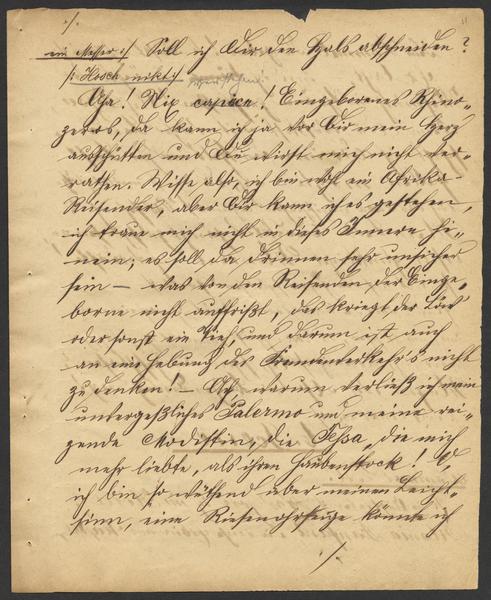 ./.
11
ein Messer :/ Soll ich Dir den Hals abschneiden?
/: Hosch nickt :/
Aha! Nix capice! Eingeborenes Rhino-
zeros, da kann ich ja vor Dir mein Herz
ausschütten und Du wirst mich nicht ver-
rathen. Wisse also, ich bin wohl ein Afrika-
Reisender, aber Dir kann ich es gestehen,
ich traue mich nicht in dieses Innere hi-
nein; es soll da drinnen sehr unsicher
sein – was von den Reisenden der Einge-
borne nicht auffrißt, das kriegt der Löw
oder sonst ein Vieh, und darum ist auch
an eine Hebung des Fremdenverkehr's nicht
zu denken! – Ach, warum verließ ich mein
unvergeßliches Palermo und meine rei-
zende Modistin, die Tessa, die mich
mehr liebte, als ihren Haubenstock! O,
ich bin so wüthend über meinen Leicht-
sinn, eine Riesenohrfeige könnte ich
./.